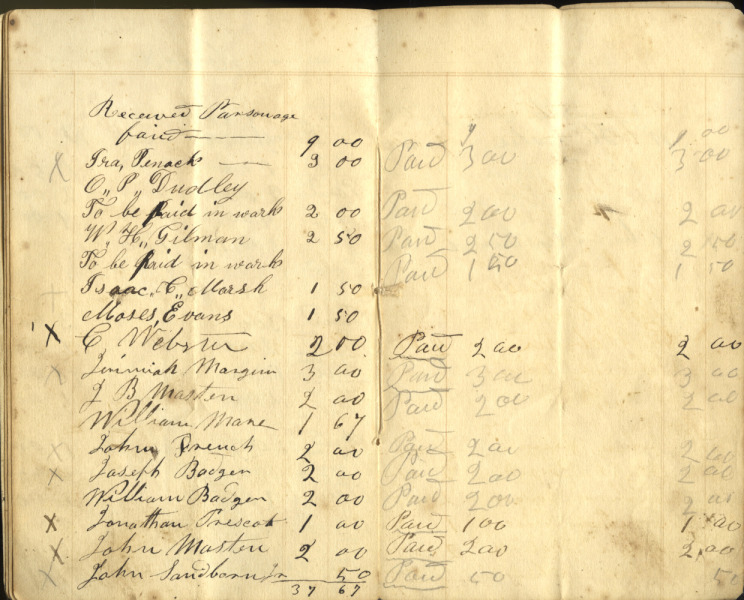 Received Parsonage
paid 9 00 9 9 00
Ira, Penock 3 00 Paid 3 00 3 00
O,, P,, Dudley
To be Paid in work 2 00 Paid 2 00 2 00
W,, H,, Gilman 2 50 Paid 2 50 2 50
To be Paid in work Paid 1 50 1 50
Isaac, C,, Marsh 1 50
Moses, Evans 1 50
C Webster 2 00 Paid 2 00 2 00
Jerimiah Margin 3 00 Paid 3 00 3 00
J B Masten 2 00 Paid 2 00 2 00
William Mane 1 67
John French 2 00 Paid 2 00 2 00
Joseph Badger 2 00 Paid 2 00 2 00
William Badger 2 00 Paid 2 00 2 00
Jonathan Prescot 1 00 Paid 1 00 1 00
John Masten 2 00 Paid 2 00 2,00
John Sandborn Jr 50 Paid 50 50
37 67